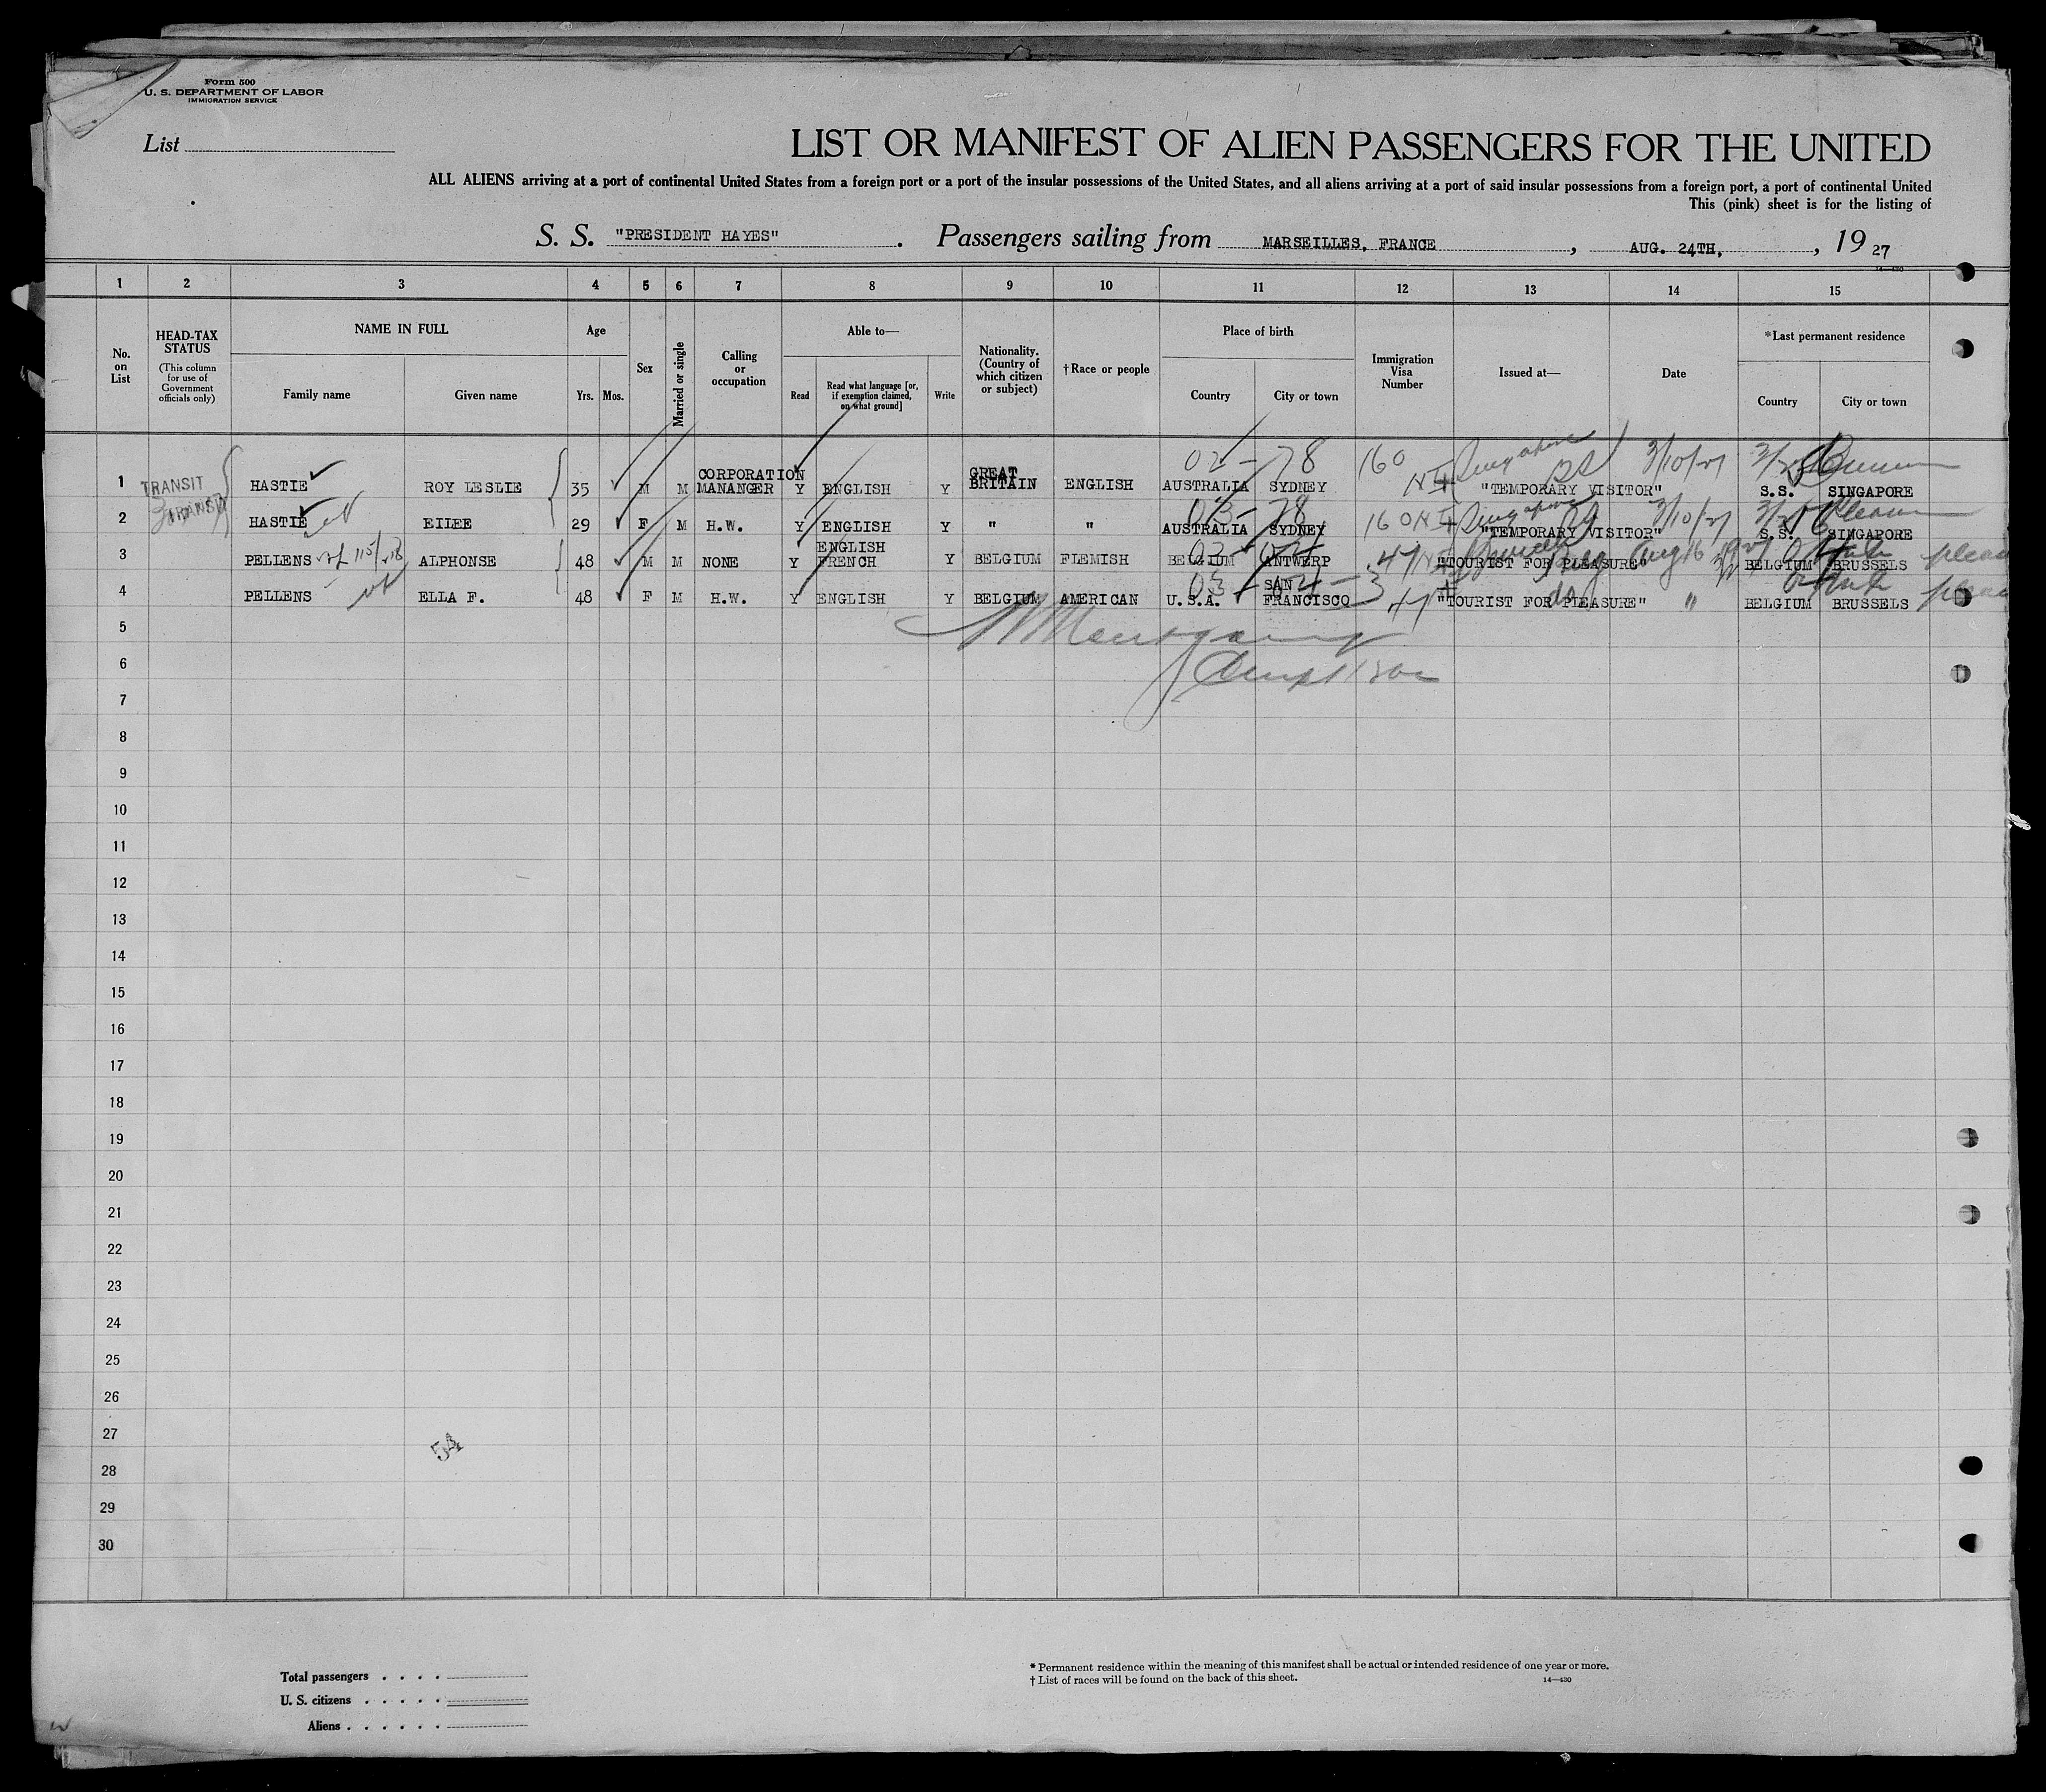 Form 500
U. S. DEPARTMENT OF LABOR
IMMIGRATION SERVICE
List
LIST OR MANIFEST OF ALIEN PASSENGERS FOR THE UNITED
ALL ALIENS arriving at a port of continental United States from a foreign port or a port of the insular possessions of the United States, and all aliens arriving at a port of said insular possessions from a foreign port, a port of continental United
This (pink) sheet is for the listing of
S. S. "PRESIDENT HAYES". Passengers sailing from MARSEILLES, FRANCE, AUG. 24TH, , 19 27
14—430
1 2 3 4 5 6 7 8 9 10 11 12 13 14 15
No. on List
HEAD-TAX STATUS
(This column for use of Government officials only)
NAME IN FULL
Family name
Given name
Age
Yrs. Mos.
Sex
Married or single
Calling or occupation
Able to—
Read
Read what language [or, if exemption claimed, on what ground]
Write
Nationality. (Country of which citizen or subject)
†Race or people
Place of birth
Country
City or town
Immigration Visa Number
Issued at—
Date
*Last permanent residence
Country
City or town
02 - 78 160 Singapore 3/10/27
1 TRANSIT HASTIE ROY LESLIE 35 M M CORPORATION MANANGER Y ENGLISH Y GREAT BRITAIN ENGLISH AUSTRALIA SYDNEY "TEMPORARY VISITOR" S.S. SINGAPORE
03 - 78 160 Singapore 3/10/27
2 TRANSIT HASTIE EILEE 29 F M H.W. Y ENGLISH Y " " AUSTRALIA SYDNEY "TEMPORARY VISITOR" S.S. SINGAPORE
3 PELLENS ALPHONSE 48 M M NONE Y ENGLISH FRENCH Y BELGIUM FLEMISH BELGIUM ANTWERP 47 "TOURIST FOR PLEASURE" Aug 16 BELGIUM BRUSSELS
4 PELLENS ELLA F. 48 F M H.W. Y ENGLISH Y BELGIUM AMERICAN U.S.A. SAN FRANCISCO 47 "TOURIST FOR PLEASURE" " BELGIUM BRUSSELS
5
6
7
8
9
10
11
12
13
14
15
16
17
18
19
20
21
22
23
24
25
26
27
54
28
29
30
Total passengers . . . .
U. S. citizens . . . . .
Aliens . . . . . .
* Permanent residence within the meaning of this manifest shall be actual or intended residence of one year or more.
† List of races will be found on the back of this sheet.
14—430